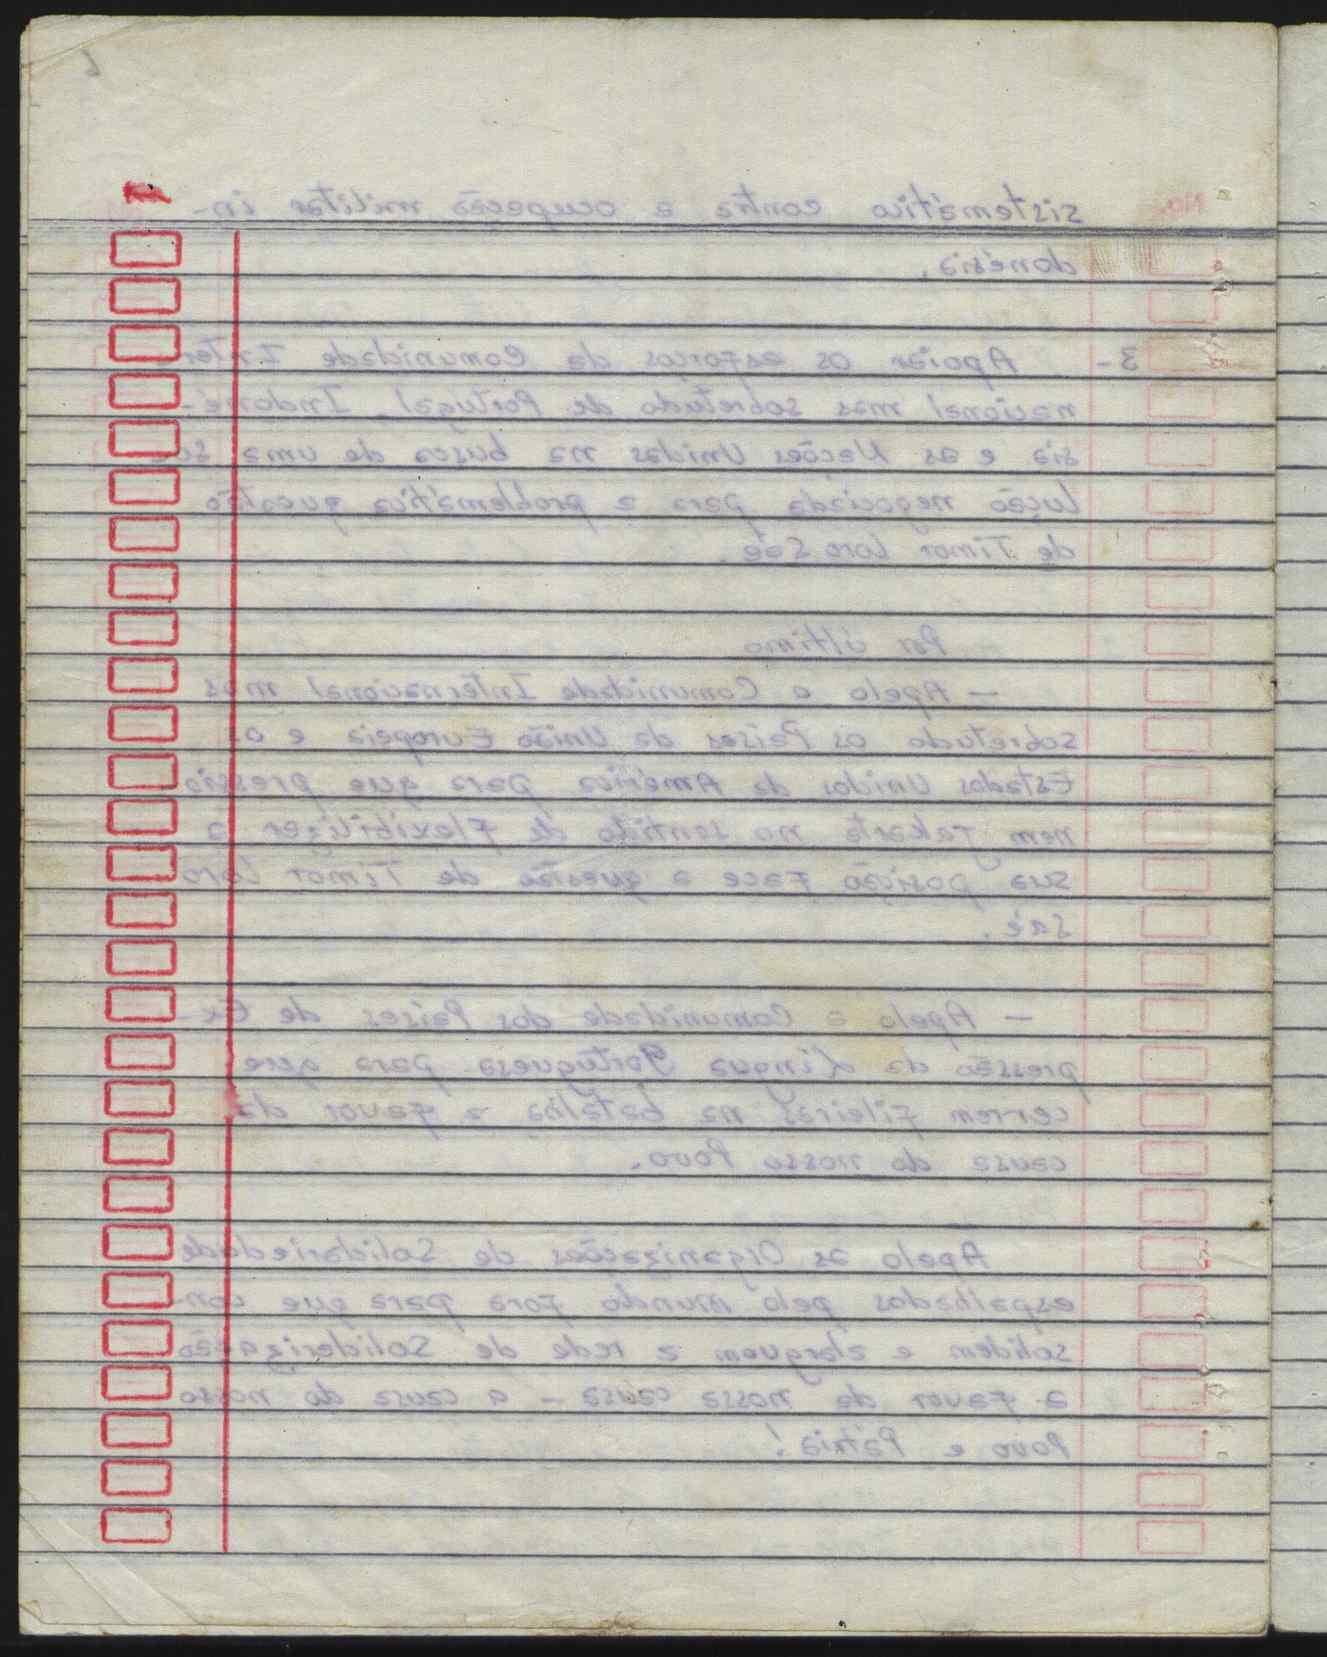 6
No.
sistemático contra a ocupação militar in-
donésia.
3- Apoiar os esforços da Comunidade Inter
nacional mas sobretudo de Portugal, Indoné-
sia e as Nações Unidas na busca de uma so
lução negociada para a problemática questão
de Timor Loro Saé.
Por último
- Apelo a Comunidade Internacional mas
sobretudo os Países da União Europeia e os
Estados Unidos da América para que pressio
nem Jakarta no sentido de flexibilizar a
sua posição face a questão de Timor Loro
Saé.
- Apelo a Comunidade dos Países de Ex-
pressão da Língua Portuguesa para que
cerrem fileiras na batalha a favor da
causa do nosso Povo.
Apelo as Organizações de Solidariedade
espalhados pelo mundo fora para que con-
solidem e alarguem a rede de Solidarização
a favor da nossa causa - a causa do nosso
Povo e Pátria!